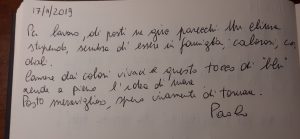 17/9/2019
Per lavoro, di posti ne giro parecchi. Un b&b
stupendo, sembra di essere in famiglia, calorosi, cor
diali.
Camere dai colori vivaci e questo tocco di "blu"
rende a pieno l'idea di mare
Posto meraviglioso, spero vivamente di tornare.
Paolo